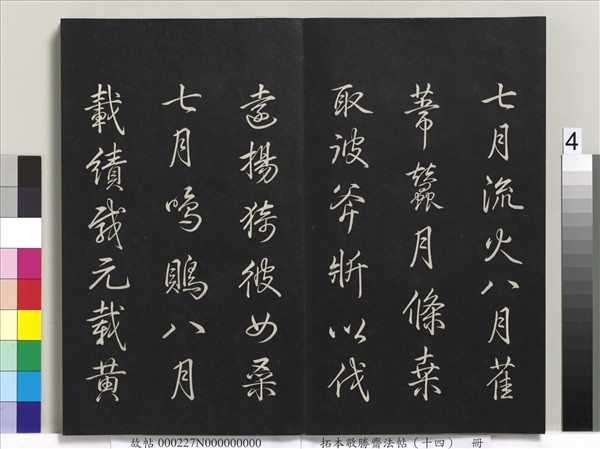 七月流火八月萑
葦蠶月條桑
取彼斧斨以伐
遠揚猗彼女桑
七月鳴鵙八月
載績載玄載黃
4
故帖 000227N000000000
拓本敬勝齋法帖（十四） 冊